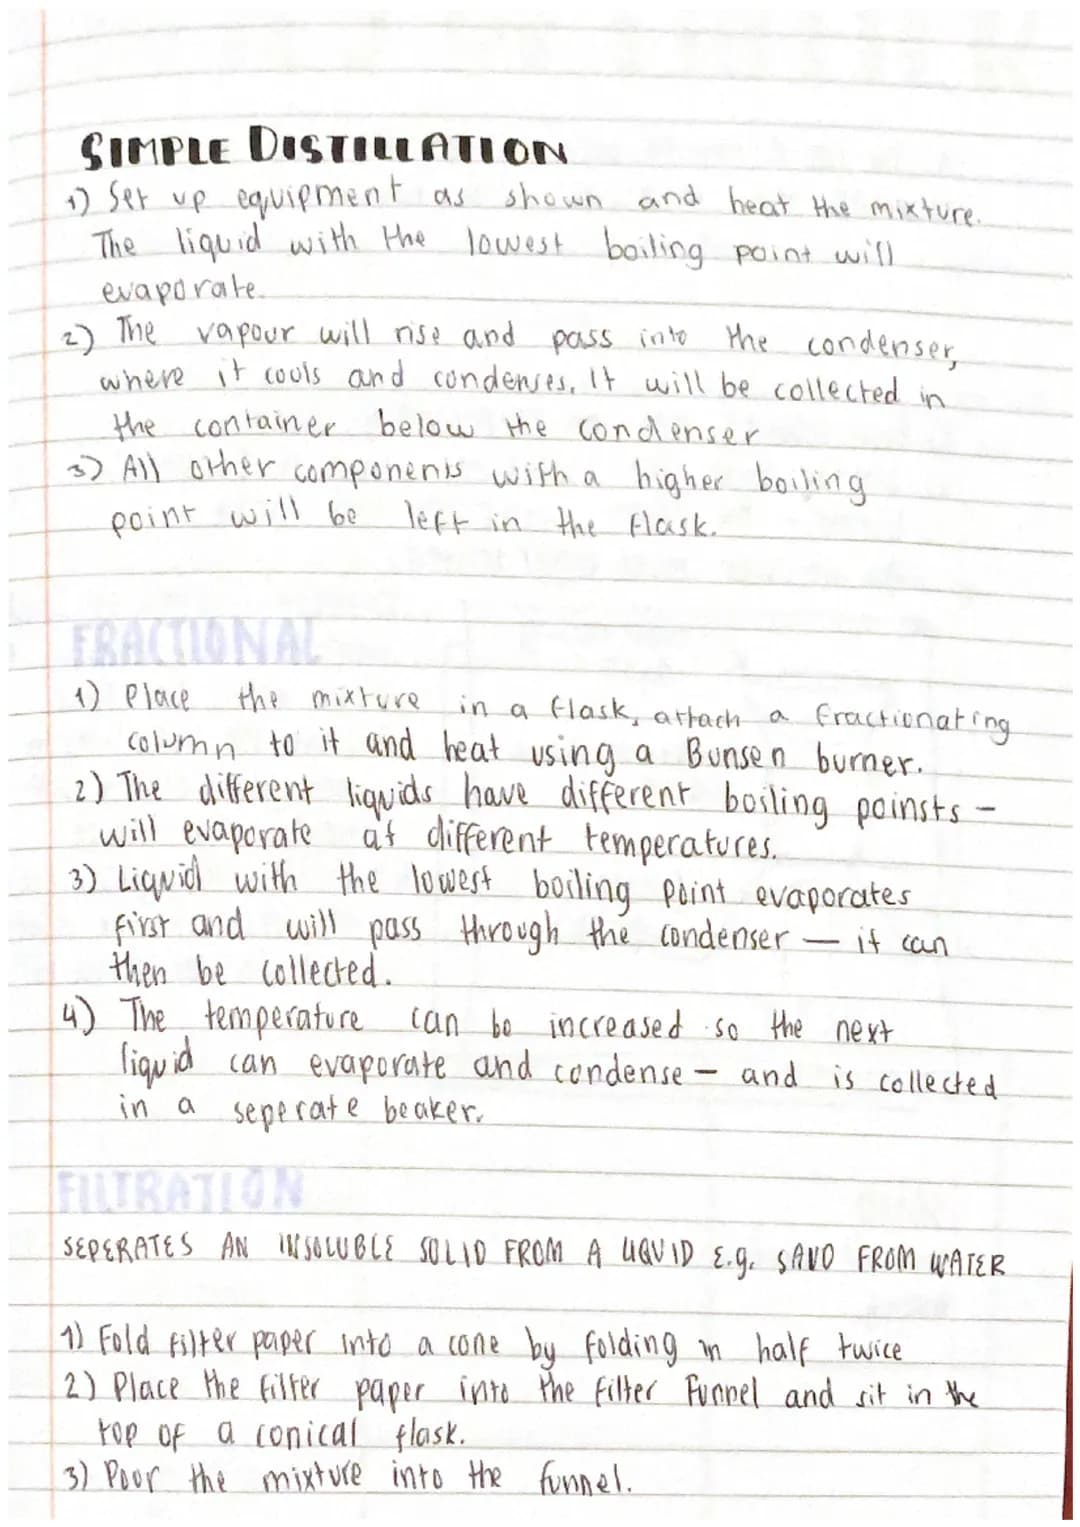 SIMPLE DISTILLATION
1) Set up equipment as shown and heat the mixture.
The liquid with the lowest boiling point will
evaporate.
2) The vapour will rise and pass into the condenser,
where it cools and condenses. It will be collected in
the container below the condenser
3) All other components with a higher boiling
point will be left in the flask.
FRACTIONAL
1) Place the mixture in a flask, attach a fractionating
column to it and heat using a Bunsen burner.
2) The different liquids have different boiling poinsts -
will evaporate at different temperatures.
3) Liquid with the lowest boiling point evaporates
first and will pass through the condenser - it can
then be collected.
4) The temperature can be increased so the next
liquid can evaporate and condense - and is collected
in a seperate beaker.
FILTRATION
SEPERATES AN INSOLUBLE SOLID FROM A LIQUID E.g. SAND FROM WATER
1) Fold filter paper into a cone by folding in half twice
2) Place the filter paper into the filter funnel and sit in the
top of a conical flask.
3) Pour the mixture into the funnel.